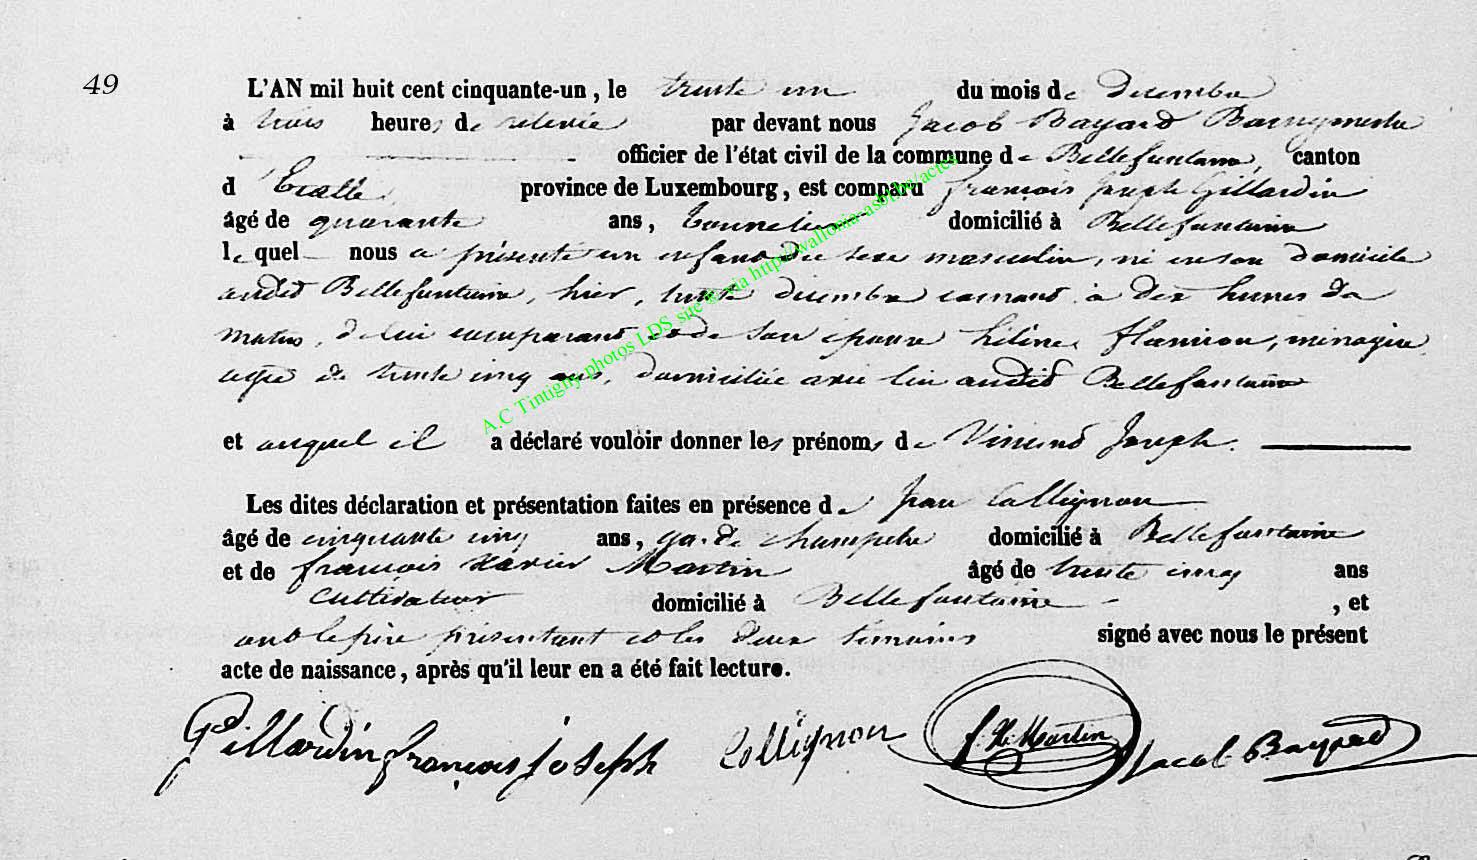 49
L'AN mil huit cent cinquante-un, le trente un du mois de decembre
à trois heures de relevée par devant nous Jacob Bayard Bourgmestre
officier de l'état civil de la commune de Bellefontaine, canton
d'Etalle province de Luxembourg, est comparu françois Joseph Gillardin
âgé de quarante ans, tonnelier domicilié à Bellefontaine
lequel nous a présenté un enfant du sexe masculin, né en son domicile
audit Bellefontaine, hier, trente decembre courant à dix heures du
matin, de lui comparant et de son épouse hélène flamion, ménagère
agée de trente cinq ans, domiciliée avec lui audit Bellefontaine
et auquel il a déclaré vouloir donner les prénoms de Vincent Joseph.
Les dites déclaration et présentation faites en présence de Jean Collignon
âgé de cinquante cinq ans, garde champetre domicilié à Bellefontaine
et de françois Xavier Martin âgé de trente cinq ans
cultivateur domicilié à Bellefontaine, et
ont le père présentant et les deux témoins signé avec nous le présent
acte de naissance, après qu'il leur en a été fait lecture.
Gillardin françois joseph Collignon f. X. Martin Jacob Bayard
A.C Tintigny photos LDS site © via http://wallonia-asbl.be/actes